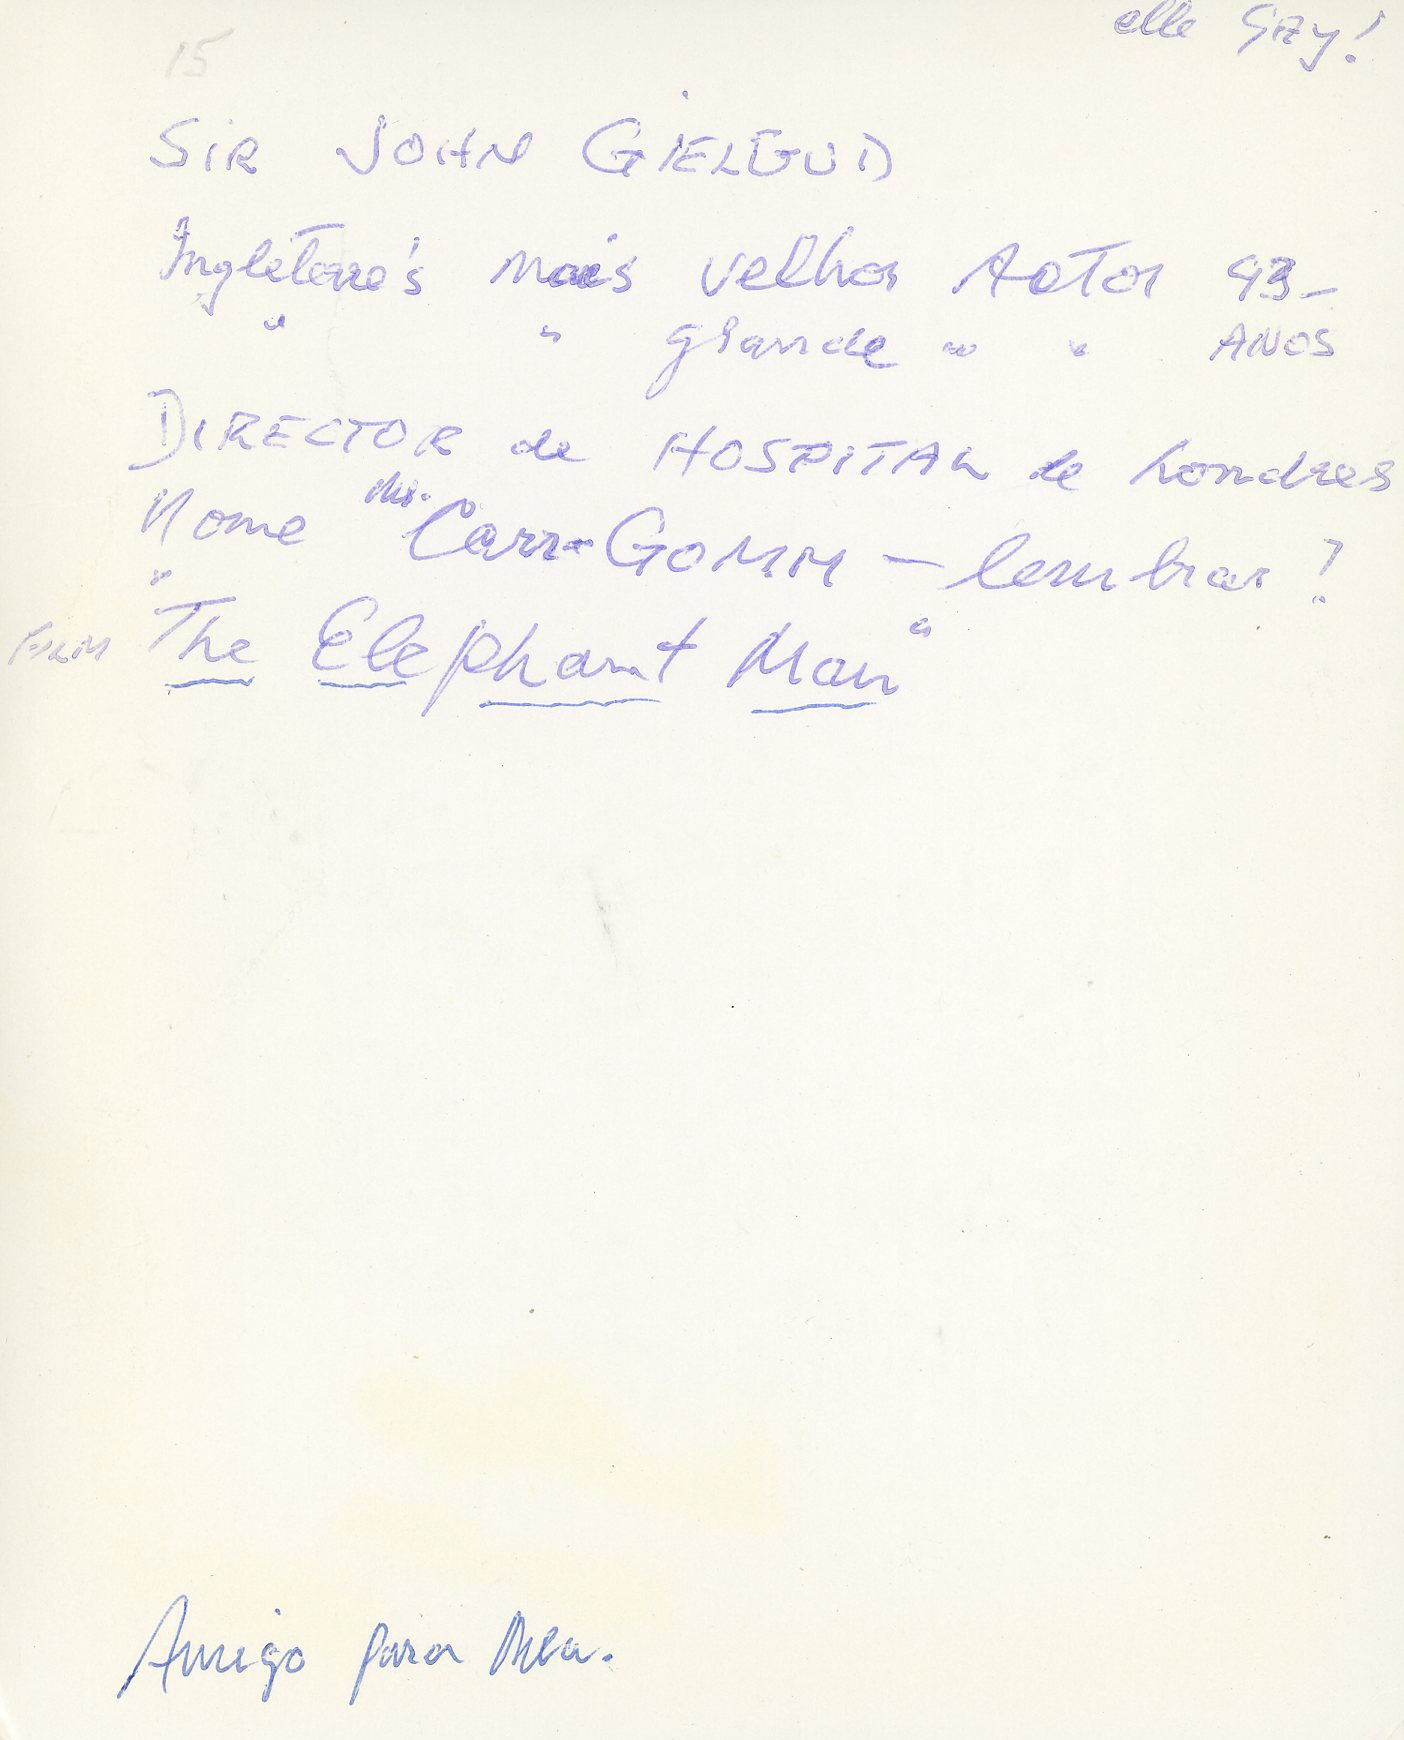 elle GAy!
15
SiR JOHN GiELGUD
Ingleterre's mais velhor Actor 93-
" " grande " " ANOS
DIRECTOR de HOSPITAL de Londres
Nome Mr. Carr-GOMM - lembrar?
FiLM "The Elephant Man"
Amigo para